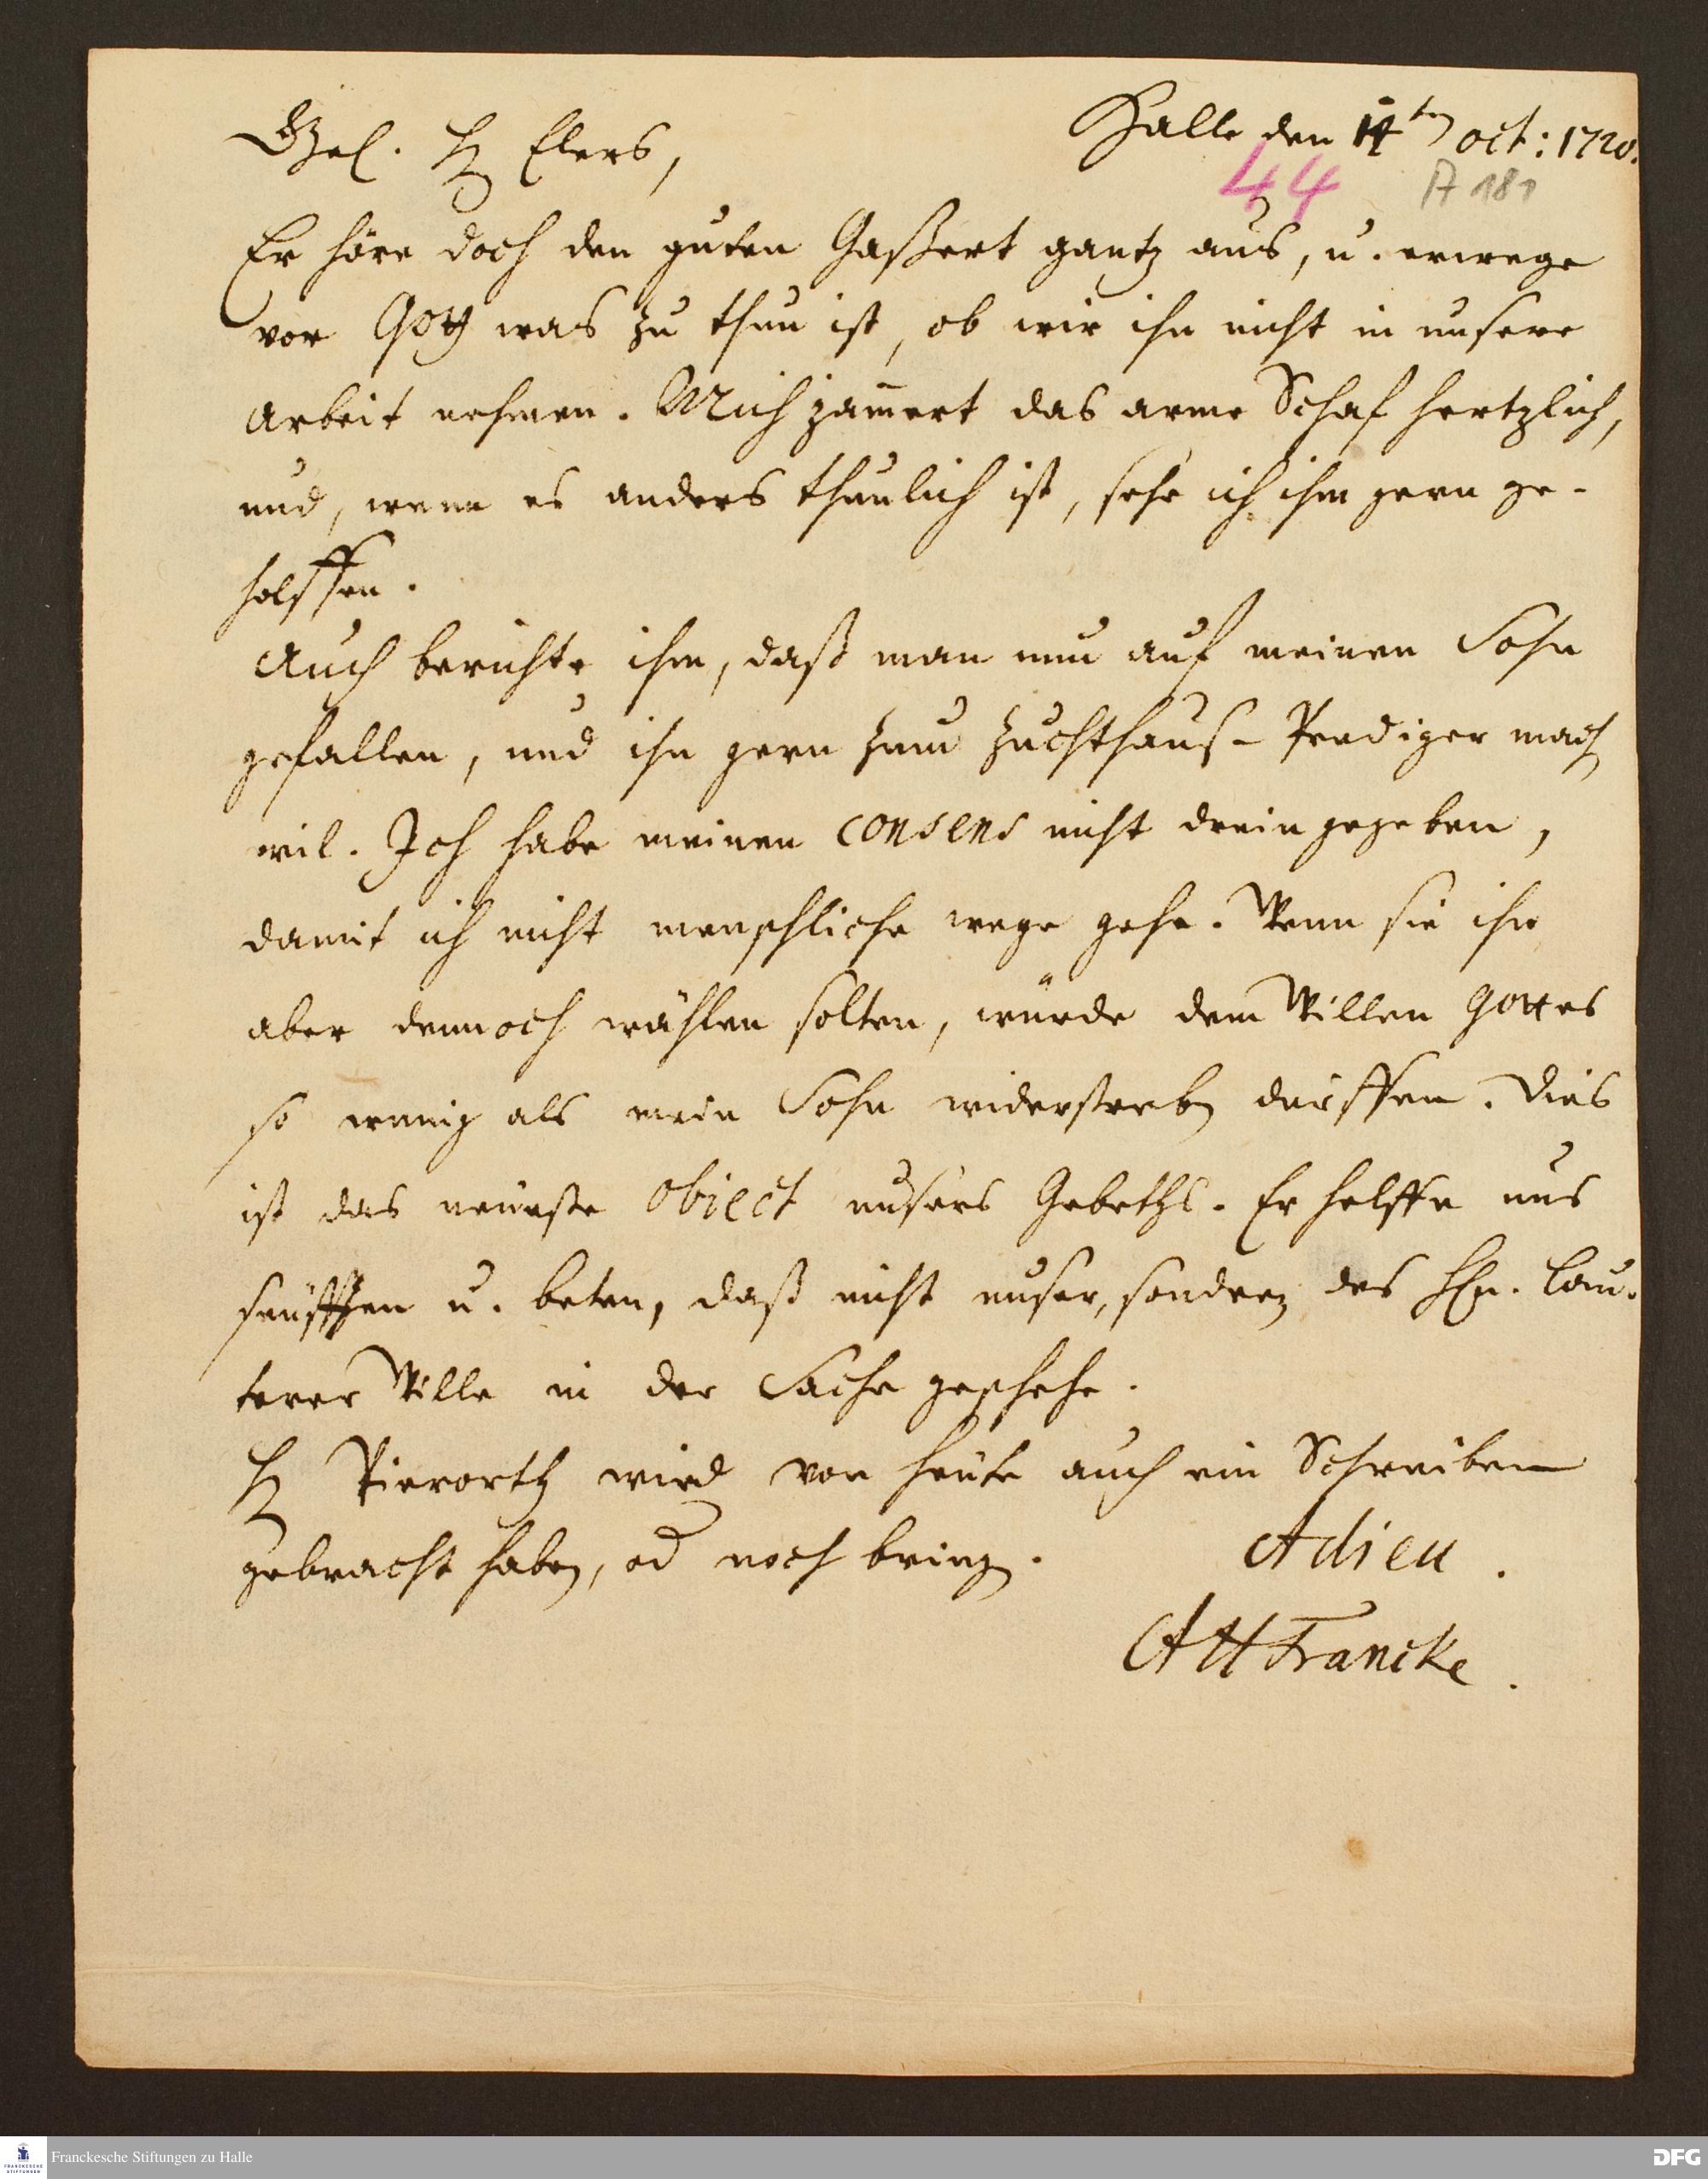 Halle den 14ten oct: 1720.
44 A 181
Gel. H Elers,
Er höre doch den guten Gaßert gantz aus, u. erwege
vor Gott was zu thun ist, ob wir ihn nicht in unsere
Arbeit nehmen. Mich jam̄ert das arme Schaf hertzlich,
und, wenn es anders thunlich ist, sehe ich ihm gern ge-
holffen.
Auch berichte ihm, daß man nun auf meinen Sohn
gefallen, und ihn gern zum Zuchthaus-Prediger mach
wil. Ich habe meinen consens nicht drein gegeben,
damit ich nicht menschliche wege gehe. Wenn sie ihn
aber dennoch wählen solten, würde dem Willen Gottes
so wenig als mein Sohn widerstreben dürffen. Dies
ist das neueste obiect unsers Gebeths. Er helffe uns
seuffzen u. beten, daß nicht unser, sondern des HEn. lau-
terer Wille in der Sache geschehe.
H Pierorth wird von heute auch ein Schreiben
gebracht haben, od noch bringen. Adieu.
AHFrancke.
Franckesche Stiftungen zu Halle
FRANCKESCHE STIFTUNGEN
DFG